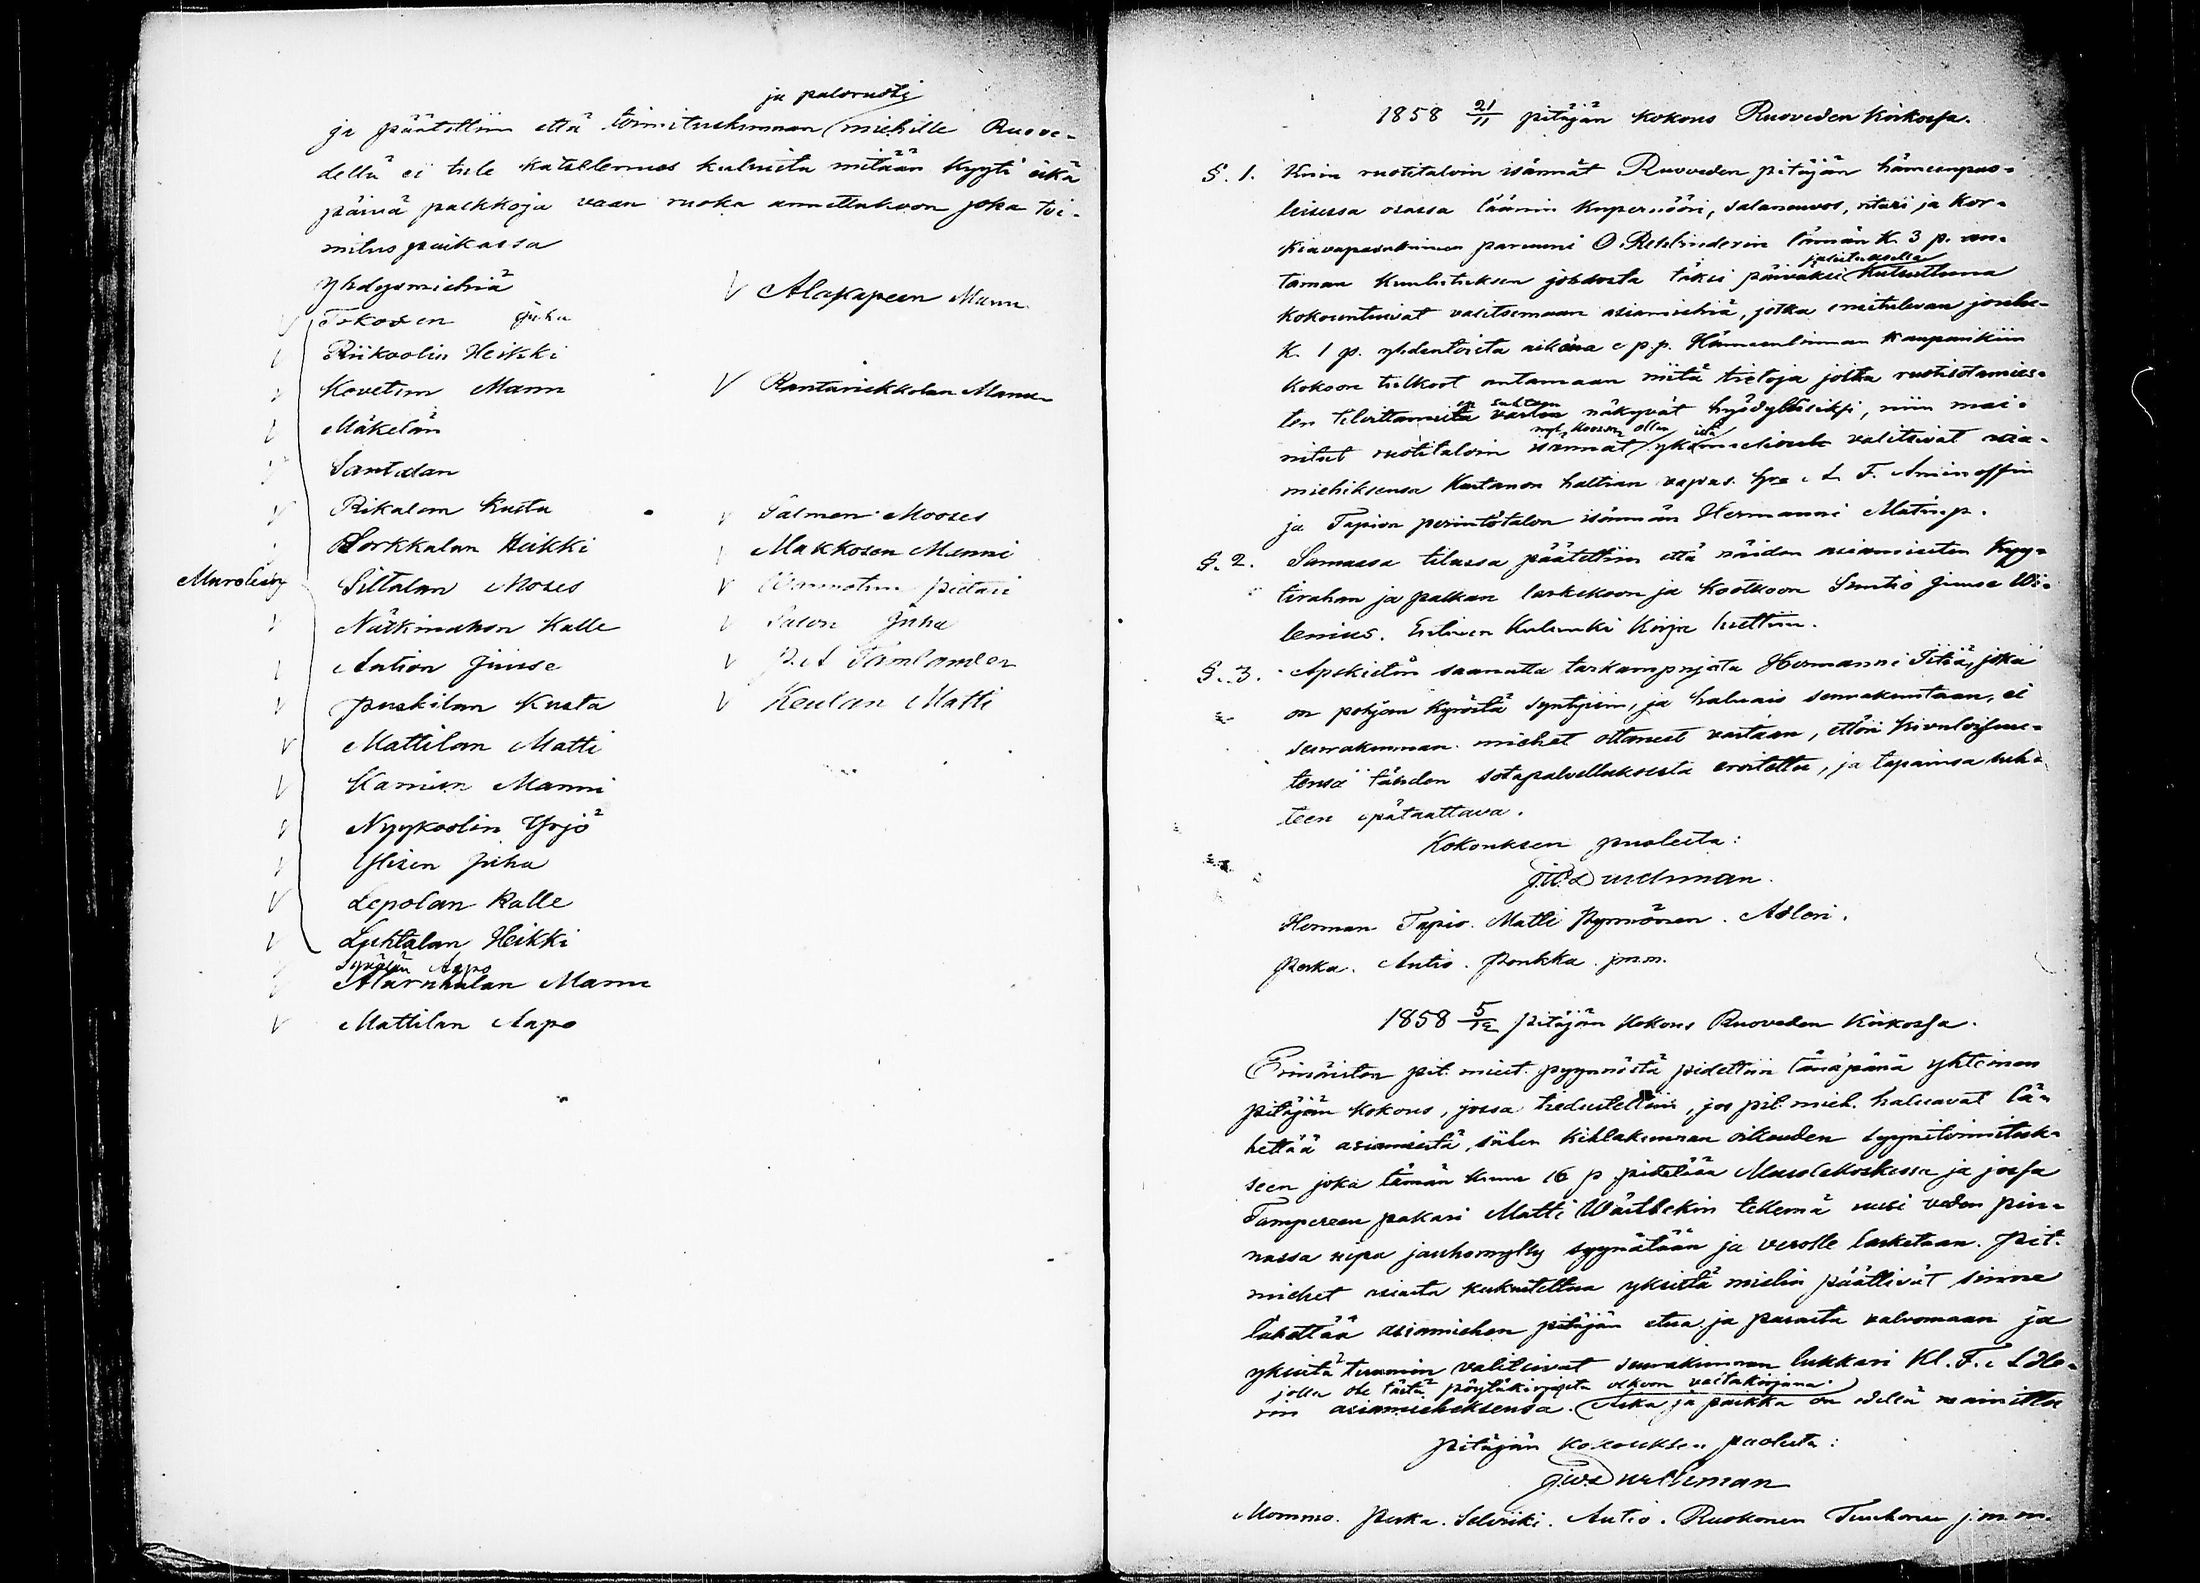 ja paloruoti
ja päätettiin että toimituskunnan miehille Ruove-
dellä ei tule katselemus kuluista mitään kyyti eikä
päivä palkkoja vaan ruoka annettakoon joka toi-
mitus paikassa
yhdysmiehiä
Juha
Riikoolin Heikki
Kovetun Manu
Mäkelän
Santalan
Rikalan Kusta
Korkkalan Heikki
Murolesby
Siltalan Moses
Närkinahon Kalle
Aution Juuse
Puskilan Kusta
Mattilan Matti
Kamiun Manni
Nyykoolin Yrjö
Ylisen Juha
Lepolan Kalle
Luhtalan Heikki
Aapo
Manu
Mattilan Aapo
V Alapapeen Manu
V Rantariekkolan Manu
V Salmen Mooses
Makkosen Manni
V Pietari
V Salon Juha
V P. A
V Keulan Matti
1858 21/11 pitäjän kokous Ruoveden Kirkossa.
§. 1. Kuin ruotitaloin isännät Ruoveden pitäjän hämeenpuo-
leisessa osassa läänin kupernööri, salaneuvos, ritari ja kor-
kiavapasukuinen paruuni O. Rehbinderin tämän K. 3 p. an-
taman kuulutuksen johdosta täksi päiväksi kutsuttuna
kokountuivat valitsemaan asiamiehiä, jotka ensitulevan joulu-
K. 1 p. yhdentoista aikana e p.p. Hämeenlinnan kaupunkiin
kokoon tulkoot antamaan niitä tietoja jotka ruotisotamies-
ten näkyvät hyödyllisiksi, niin mai-
nitut ruotitaloin isännät valitsivat asia-
miehiksensa Kautanon haltian vapas. hra A. F. Aminoffin
ja Tapion perintötalon isännän Hermanni Matinp.
§. 2. Samassa tilassa päätettiin että näiden asiamiesten kyy-
tirahan ja palkan laskekoon ja kootkoon Juuse Wi-
lenius. Kulunki Kirja luettiin.
§. 3. Apskietin saanutta tarkampujata Hermanni joka
on pohjan Kyröstä syntyisin, ja haluais seurakuntaan, ei
seurakunnan miehet ottaneet vastaan, ettön kivuloisuu-
tensa tähden sotapalvelluksesta eroitettu, ja tapainsa suh-
teen epätaattava.
Kokouksen puolesta:
J. W. Durchman.
Herman Tapio. Matti Pynnönen. Adlori.
Peska. Autio. Ponkka. j.m.m.
1858 5/12 pitäjän kokous Ruoveden Kirkossa.
Erinäisten pit. miest. pyynnöstä pidettiin tänäpänä yhteinen
pitäjän kokous, jossa tiedusteltiin, jos pit. mieh. haluavat lä-
hettää asiamiestä, siihen kihlakunnan oikeuden syynitoimituk-
seen joka tämän kuun 16 p pidetään Murolekoskessa ja jossa
Tampereen pakari Matti Wästbekin tekemä uusi veden pin-
nassa uipa jauhomylly syynätään ja verolle lasketaan. Pit.
miehet asiasta keskusteltua yksistä mielin päättivät sinne
lähettää asiamiehen pitäjän etua ja parasta valvomaan ja
yksistä tuumin valitsivat seurakunnan lukkari Kl. F. Adlo-
jolla ote tästä pöytäkirjasta olkoon valtakirjana.
rin asiamieheksensa. Aika ja paikka on edellä mainittu
Pitäjän kokouksen puolesta:
J. W. Durchman
Mommo. Peska. Selviiki. Autio. Ruokonen Tuuhonen j.m.m.